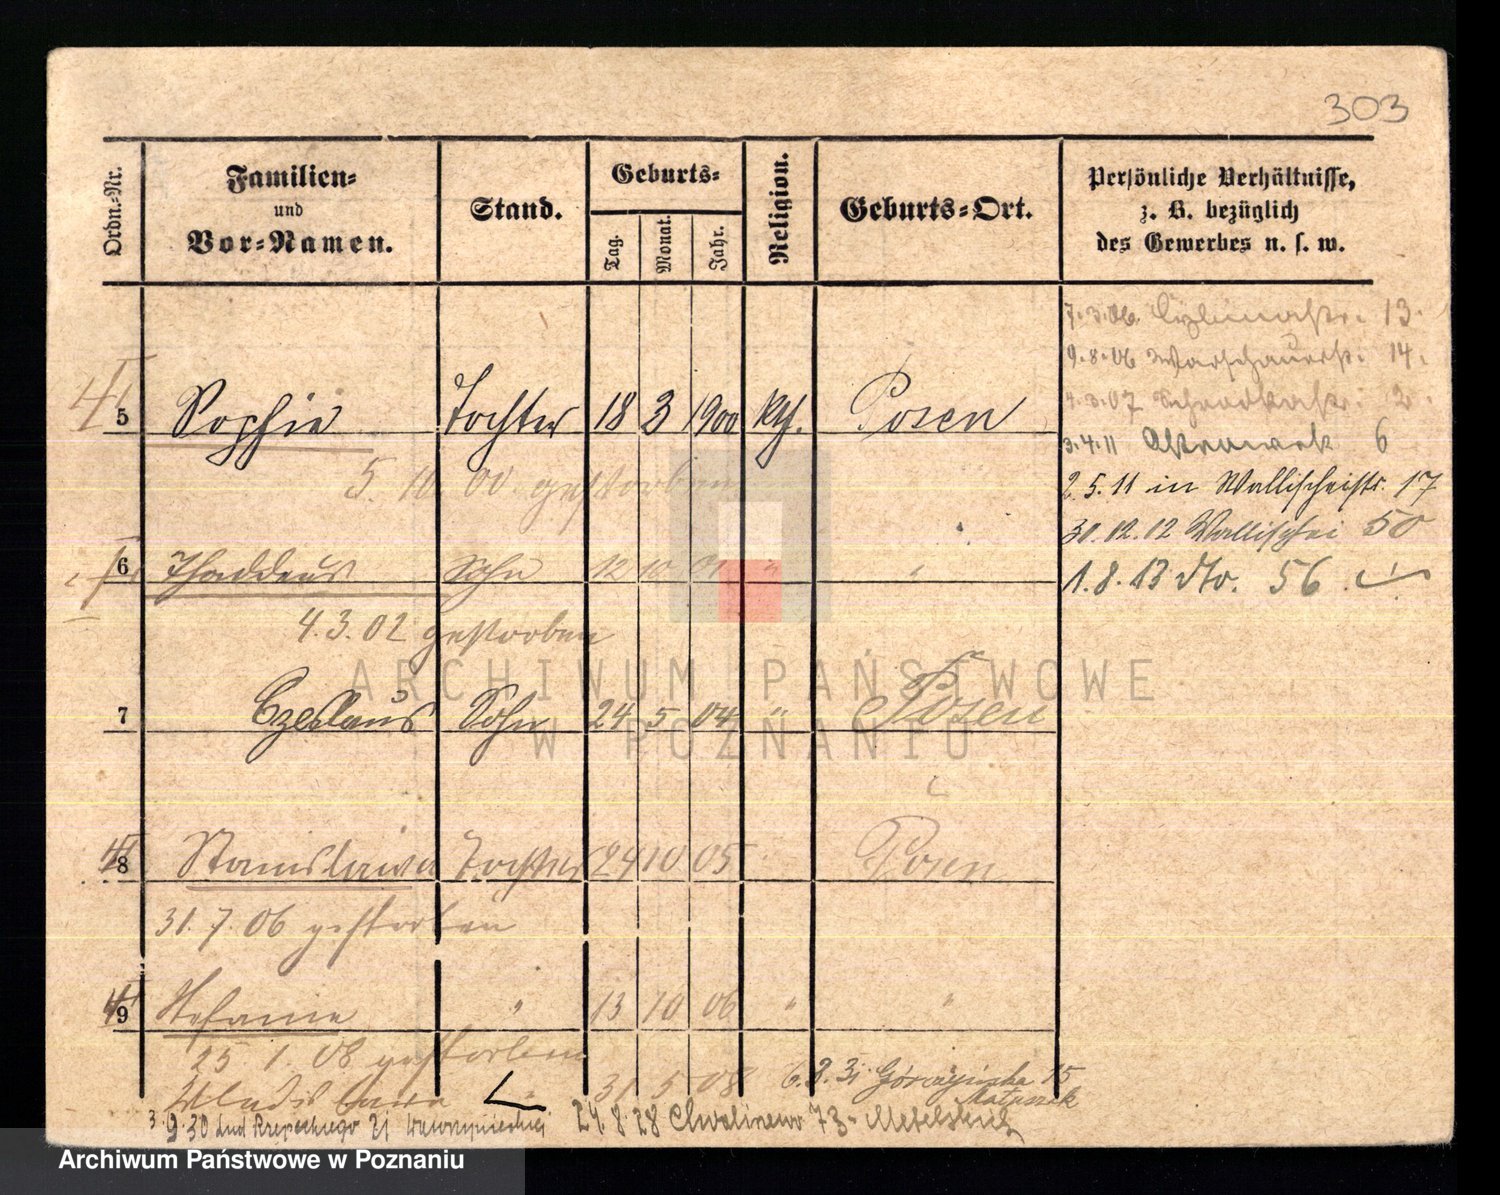 303
Ordn.-Nr.
Familien-
und
Vor-Namen.
Stand.
Geburts-
Tag. Monat. Jahr.
Religion.
Geburts-Ort.
Persönliche Verhältnisse,
z. B. bezüglich
des Gewerbes u. s. w.
7.3.06. 13.
9.8.06 Warschauerstr. 14.
4.3.07 2.
3.4.11 6
2.5.11 in Wallischeistr. 17
31.12.12 Wallischei 50
1.8.13 dto. 56.
5 Sophie Tochter 18 3 1900 kth. Posen
5. 10. 00 gestorben
6 Thaddeus Sohn 12 10 01 " "
4.3.02 gestorben
7 Czeslaus Sohn 24 5 04 " Posen
8 Stanislawa Tochter 24 10 05 Posen
31.7.06 gestorben
9 Stefanie " 13 10 06 " "
25 1. 08 gestorben
Wladislawa " 31 5 08
6.8.31. Górczyńska 15
Matuszak
3.9.30 21 24.8.28 73
ARCHIWUM PAŃSTWOWE
W POZNANIU
Archiwum Państwowe w Poznaniu